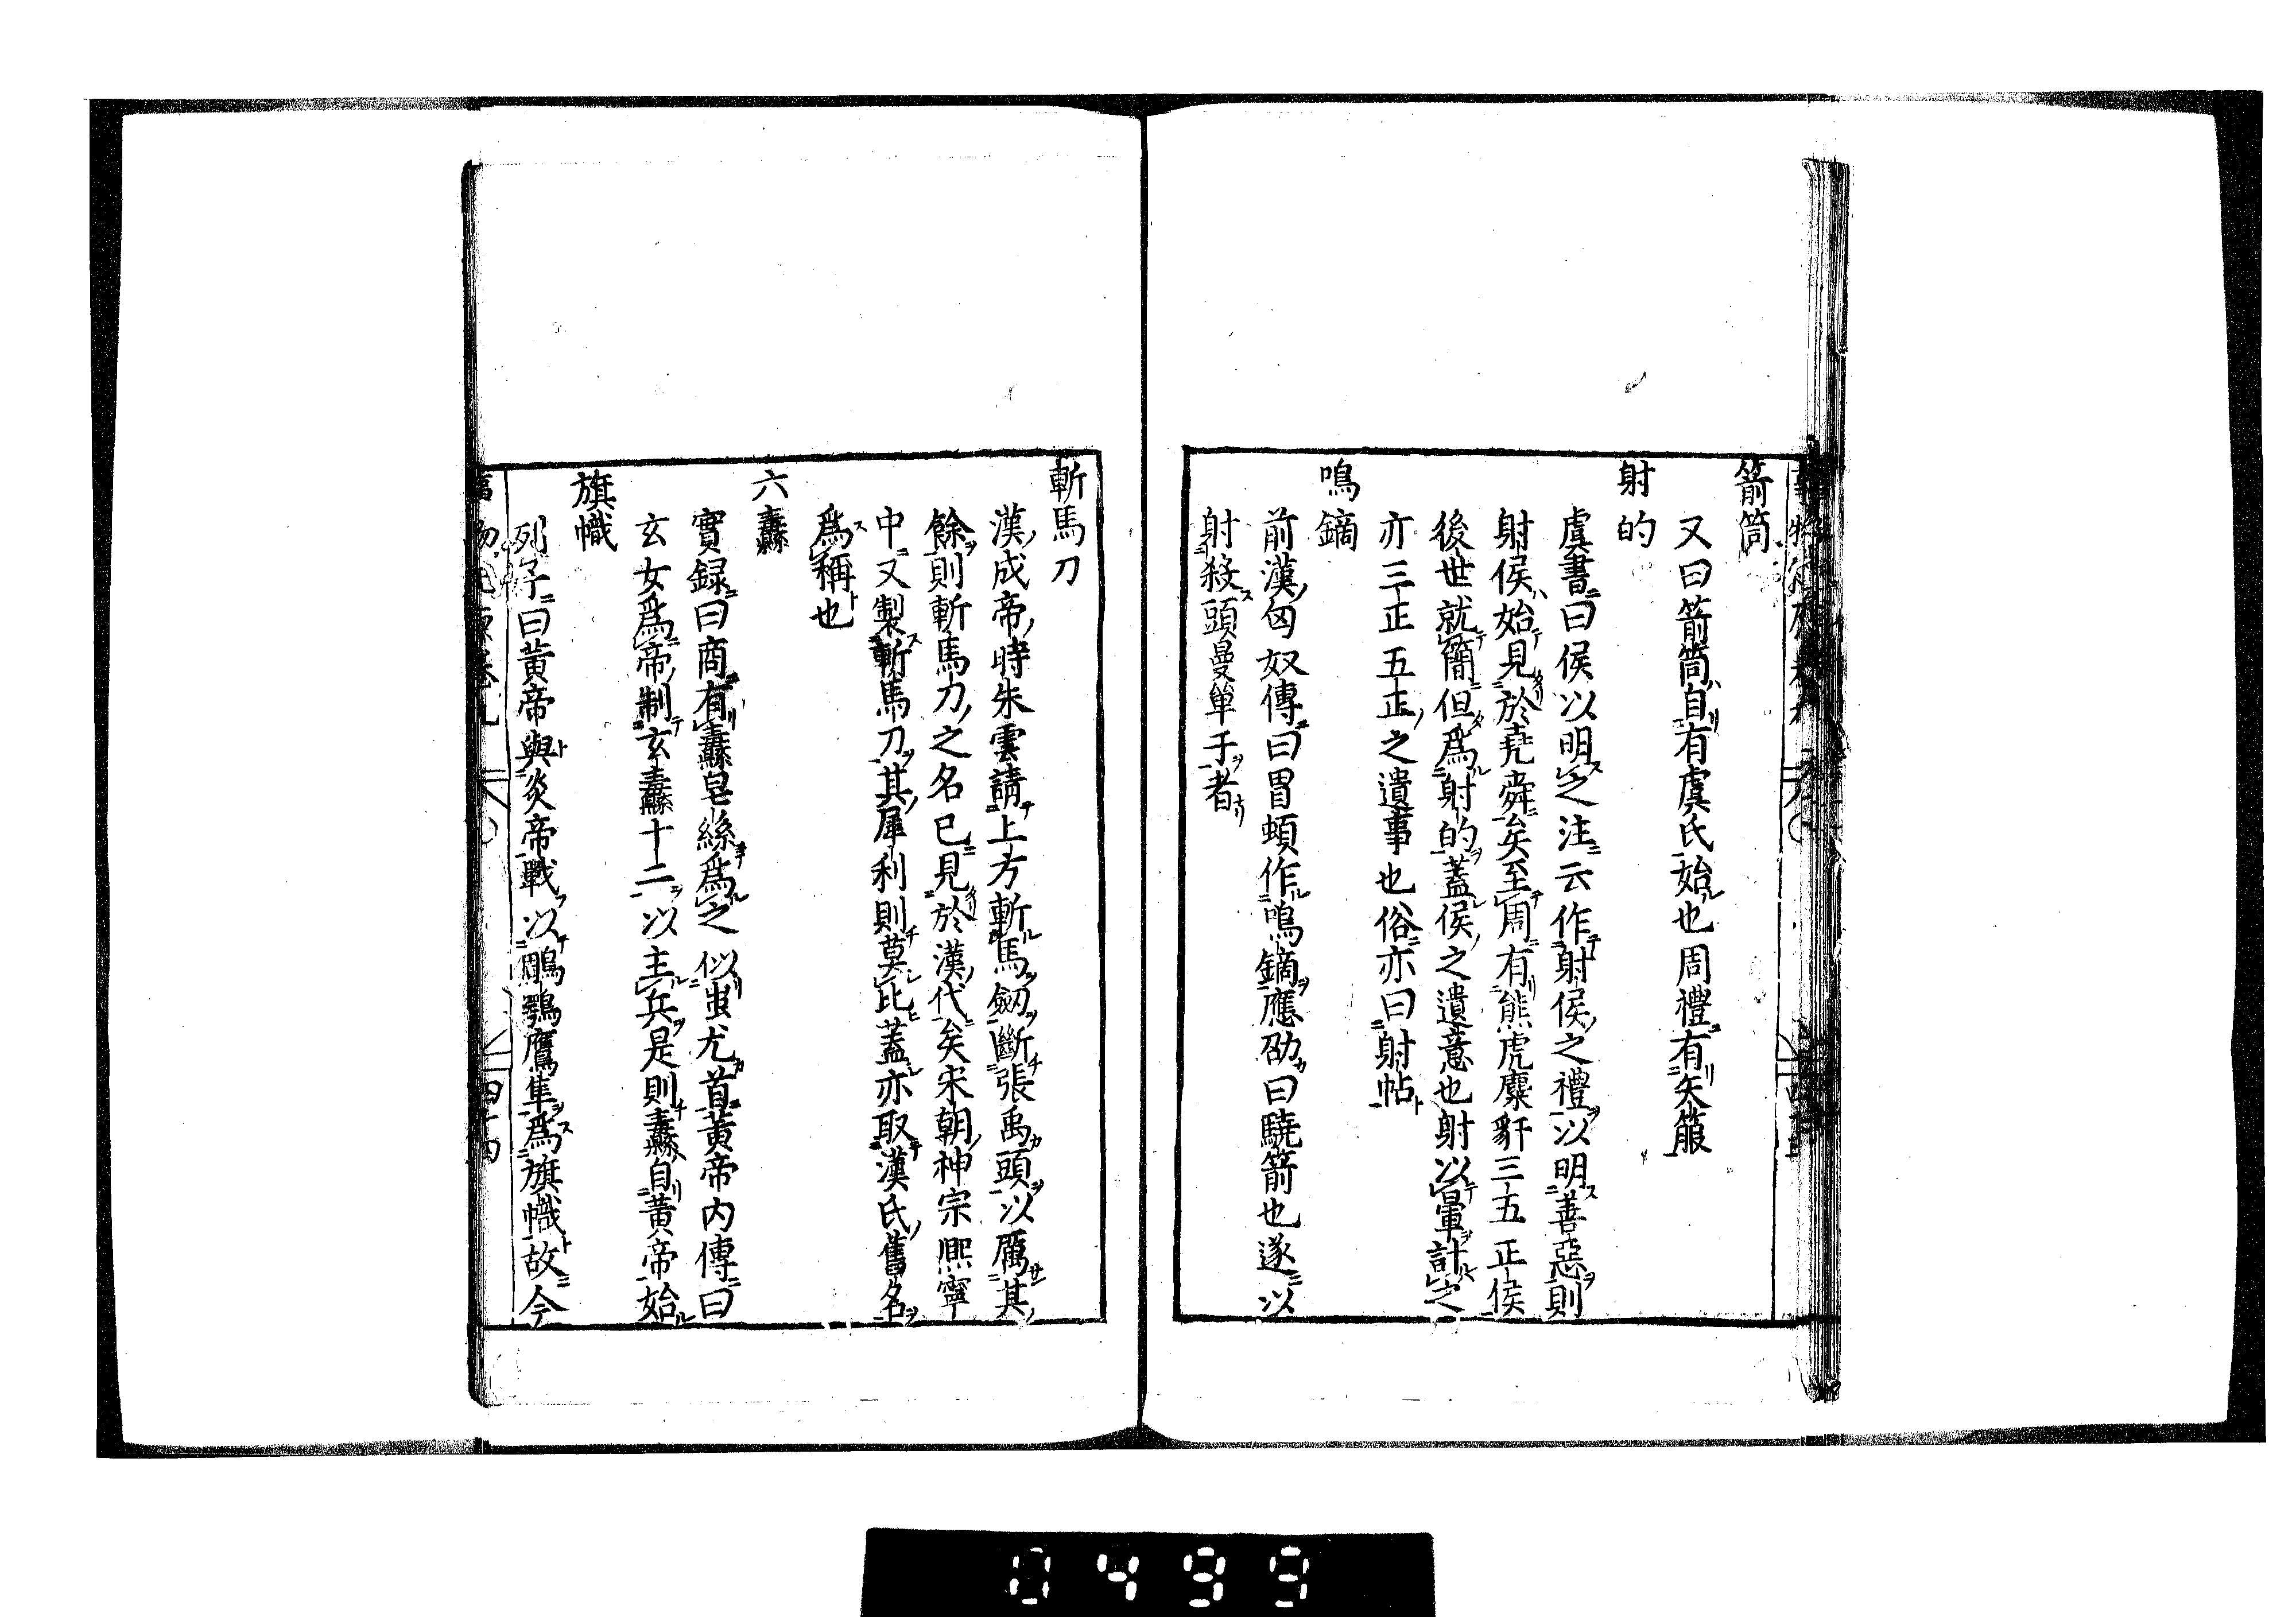 箭筒
又曰箭筒自有虞氏始也周禮有矢箙
射的
虞書曰侯以明之注云作射侯之禮以明善惡則
射侯始見於堯舜矣至周有熊虎麋豻三五正侯
後世就簡但爲射的蓋侯之遺意也射以暈計之
亦三正五正之遺事也俗亦曰射帖
鳴鏑
前漢匈奴傳曰冒頓作鳴鏑應劭曰驍箭也遂以
射殺頭曼單于者
斬馬刀
漢成帝時朱雲請上方斬馬劔斷張禹頭以厲其
餘則斬馬刀之名已見於漢代矣宋朝神宗熈寧
中又製斬馬刀其犀利則莫比蓋亦取漢氏舊名
爲稱也
六纛
實録曰商有纛皂絲爲之似蚩尤首黃帝内傳曰
玄女爲帝制玄纛十二以主兵是則纛自黃帝始
旗幟
列子曰黃帝與炎帝戰以鵰鶚鷹隼爲旗幟故今
四十四
0499